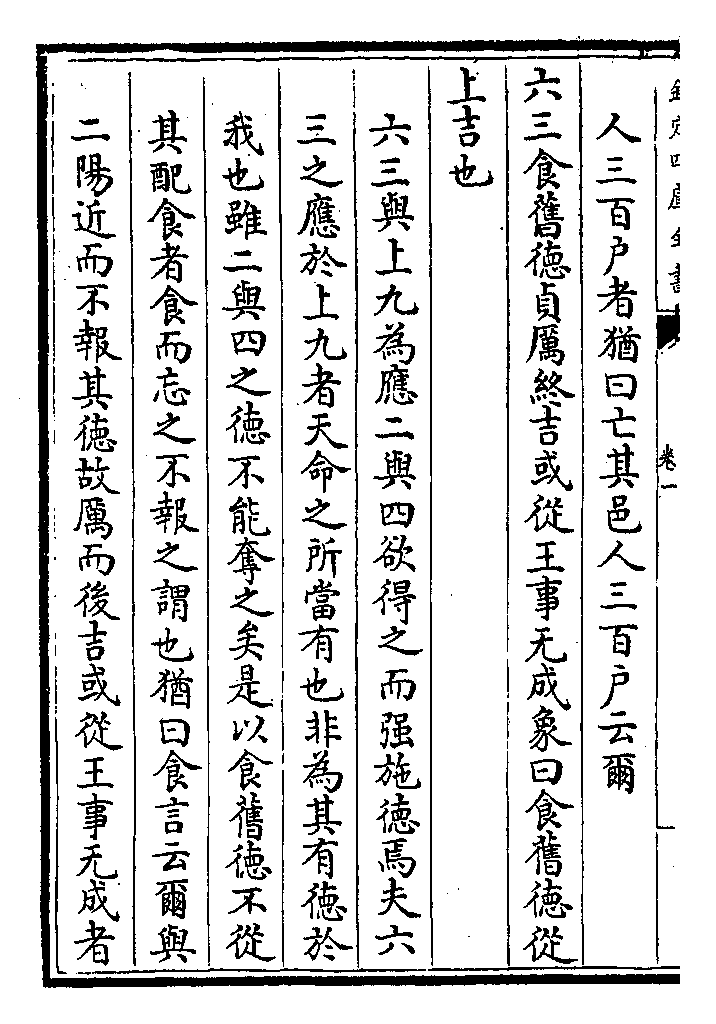 欽定四庫全書
卷一
人三百户者猶曰亡其邑人三百户云爾
六三食舊徳貞厲終吉或從王事无成象曰食舊徳從
上吉也
六三與上九為應二與四欲得之而强施徳焉夫六
三之應於上九者天命之所當有也非為其有徳於
我也雖二與四之徳不能奪之矣是以食舊徳不從
其配食者食而忘之不報之謂也猶曰食言云爾與
二陽近而不報其徳故厲而後吉或從王事无成者